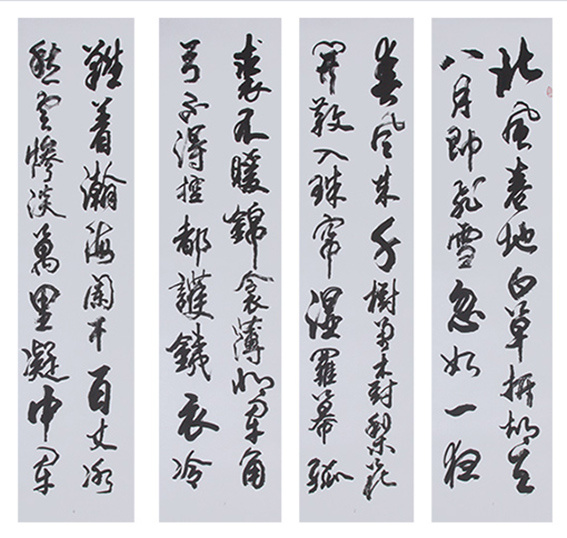 北風卷地白草折胡天
八月即飛雪忽如一夜
春風來千樹万樹梨花
開散入珠簾濕羅幕狐
裘不暖錦衾薄將軍角
弓不得控都護鐵衣冷
難着瀚海闌干百丈冰
愁雲慘淡萬里凝中軍